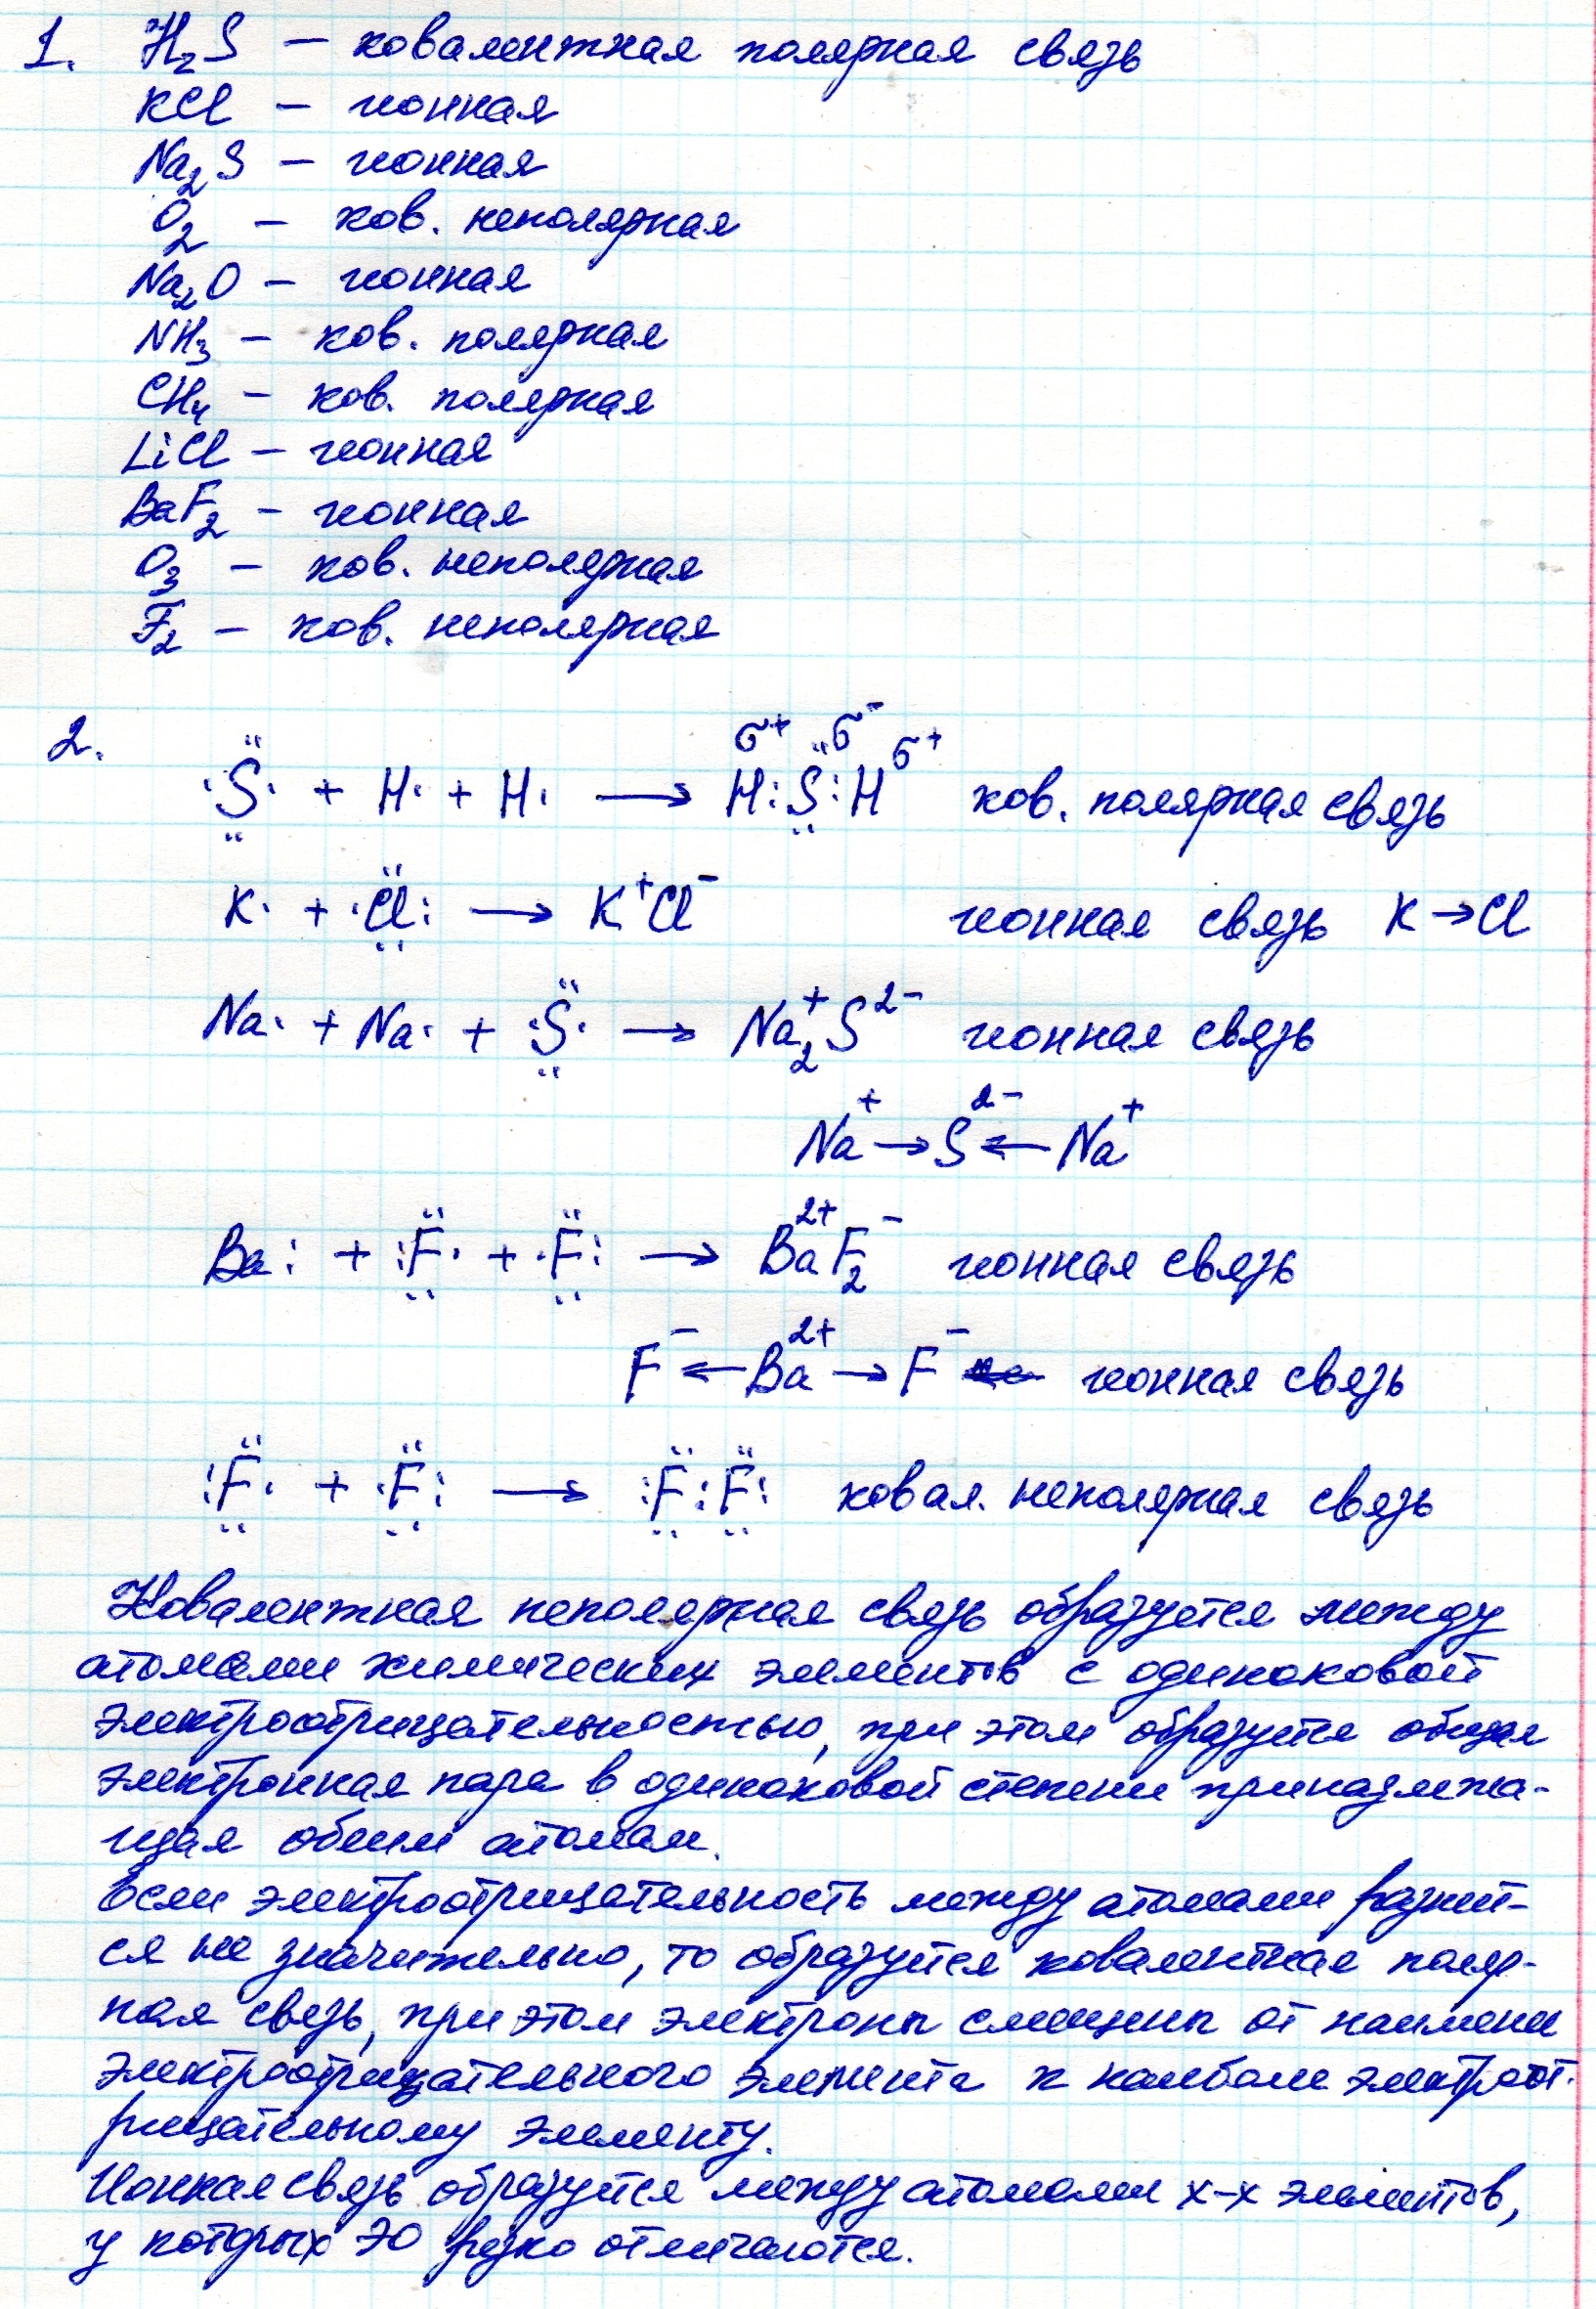 1. H₂S — ковалентная полярная связь
KCl — ионная
Na₂S — ионная
O₂ — ков. неполярная
Na₂O — ионная
NH₃ — ков. полярная
CH₄ — ков. полярная
LiCl — ионная
BaF₂ — ионная
O₃ — ков. неполярная
F₂ — ков. неполярная
2. ·S· + H· + H· → H:S:H ков. полярная связь
K· + ·Cl: → K⁺Cl⁻ ионная связь K→Cl
Na· + Na· + ·S· → Na₂⁺S²⁻ ионная связь
Na⁺→S²⁻←Na⁺
Ba: + :F· + ·F: → Ba²⁺F₂⁻ ионная связь
F⁻←Ba²⁺→F⁻ ионная связь
:F· + ·F: → :F:F: ковал. неполярная связь
Ковалентная неполярная связь образуется между
атомами химических элементов с одинаковой
электроотрицательностью, при этом образуется общая
электронная пара в одинаковой степени принадлежа-
щая обеим атомам.
Если электроотрицательность между атомами разнит-
ся не значительно, то образуется ковалентная поляр-
ная связь, при этом электроны смещены от наимени
электроотрицательного элемента к наиболе электроот-
рицательному элементу.
Ионная связь образуется между атомами х-х элементов,
у которых ЭО резко отличаются.